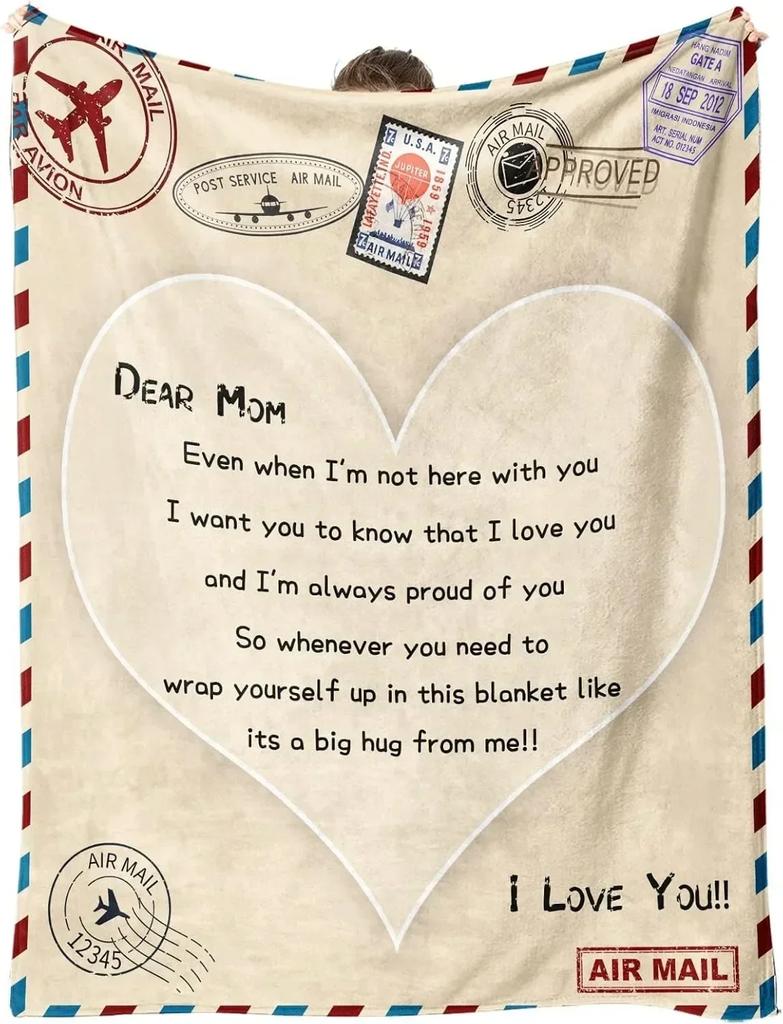 AIR MAIL
PAR AVION
POST SERVICE AIR MAIL
U.S.A.
JUPITER
LAFAYETTE, IND.
1859 ★ 1959
7¢
7¢
AIR MAIL
AIR MAIL
12345
APPROVED
HANG NADIM
GATE A
KEDATANGAN - ARRIVAL
18 SEP 2012
IMIGRASI INDONESIA
ART. SERIAL NUM
ACT NO. 012345
DEAR MOM
Even when I'm not here with you
I want you to know that I love you
and I'm always proud of you
So whenever you need to
wrap yourself up in this blanket like
its a big hug from me!!
I LOVE YOU!!
AIR MAIL
12345
AIR MAIL